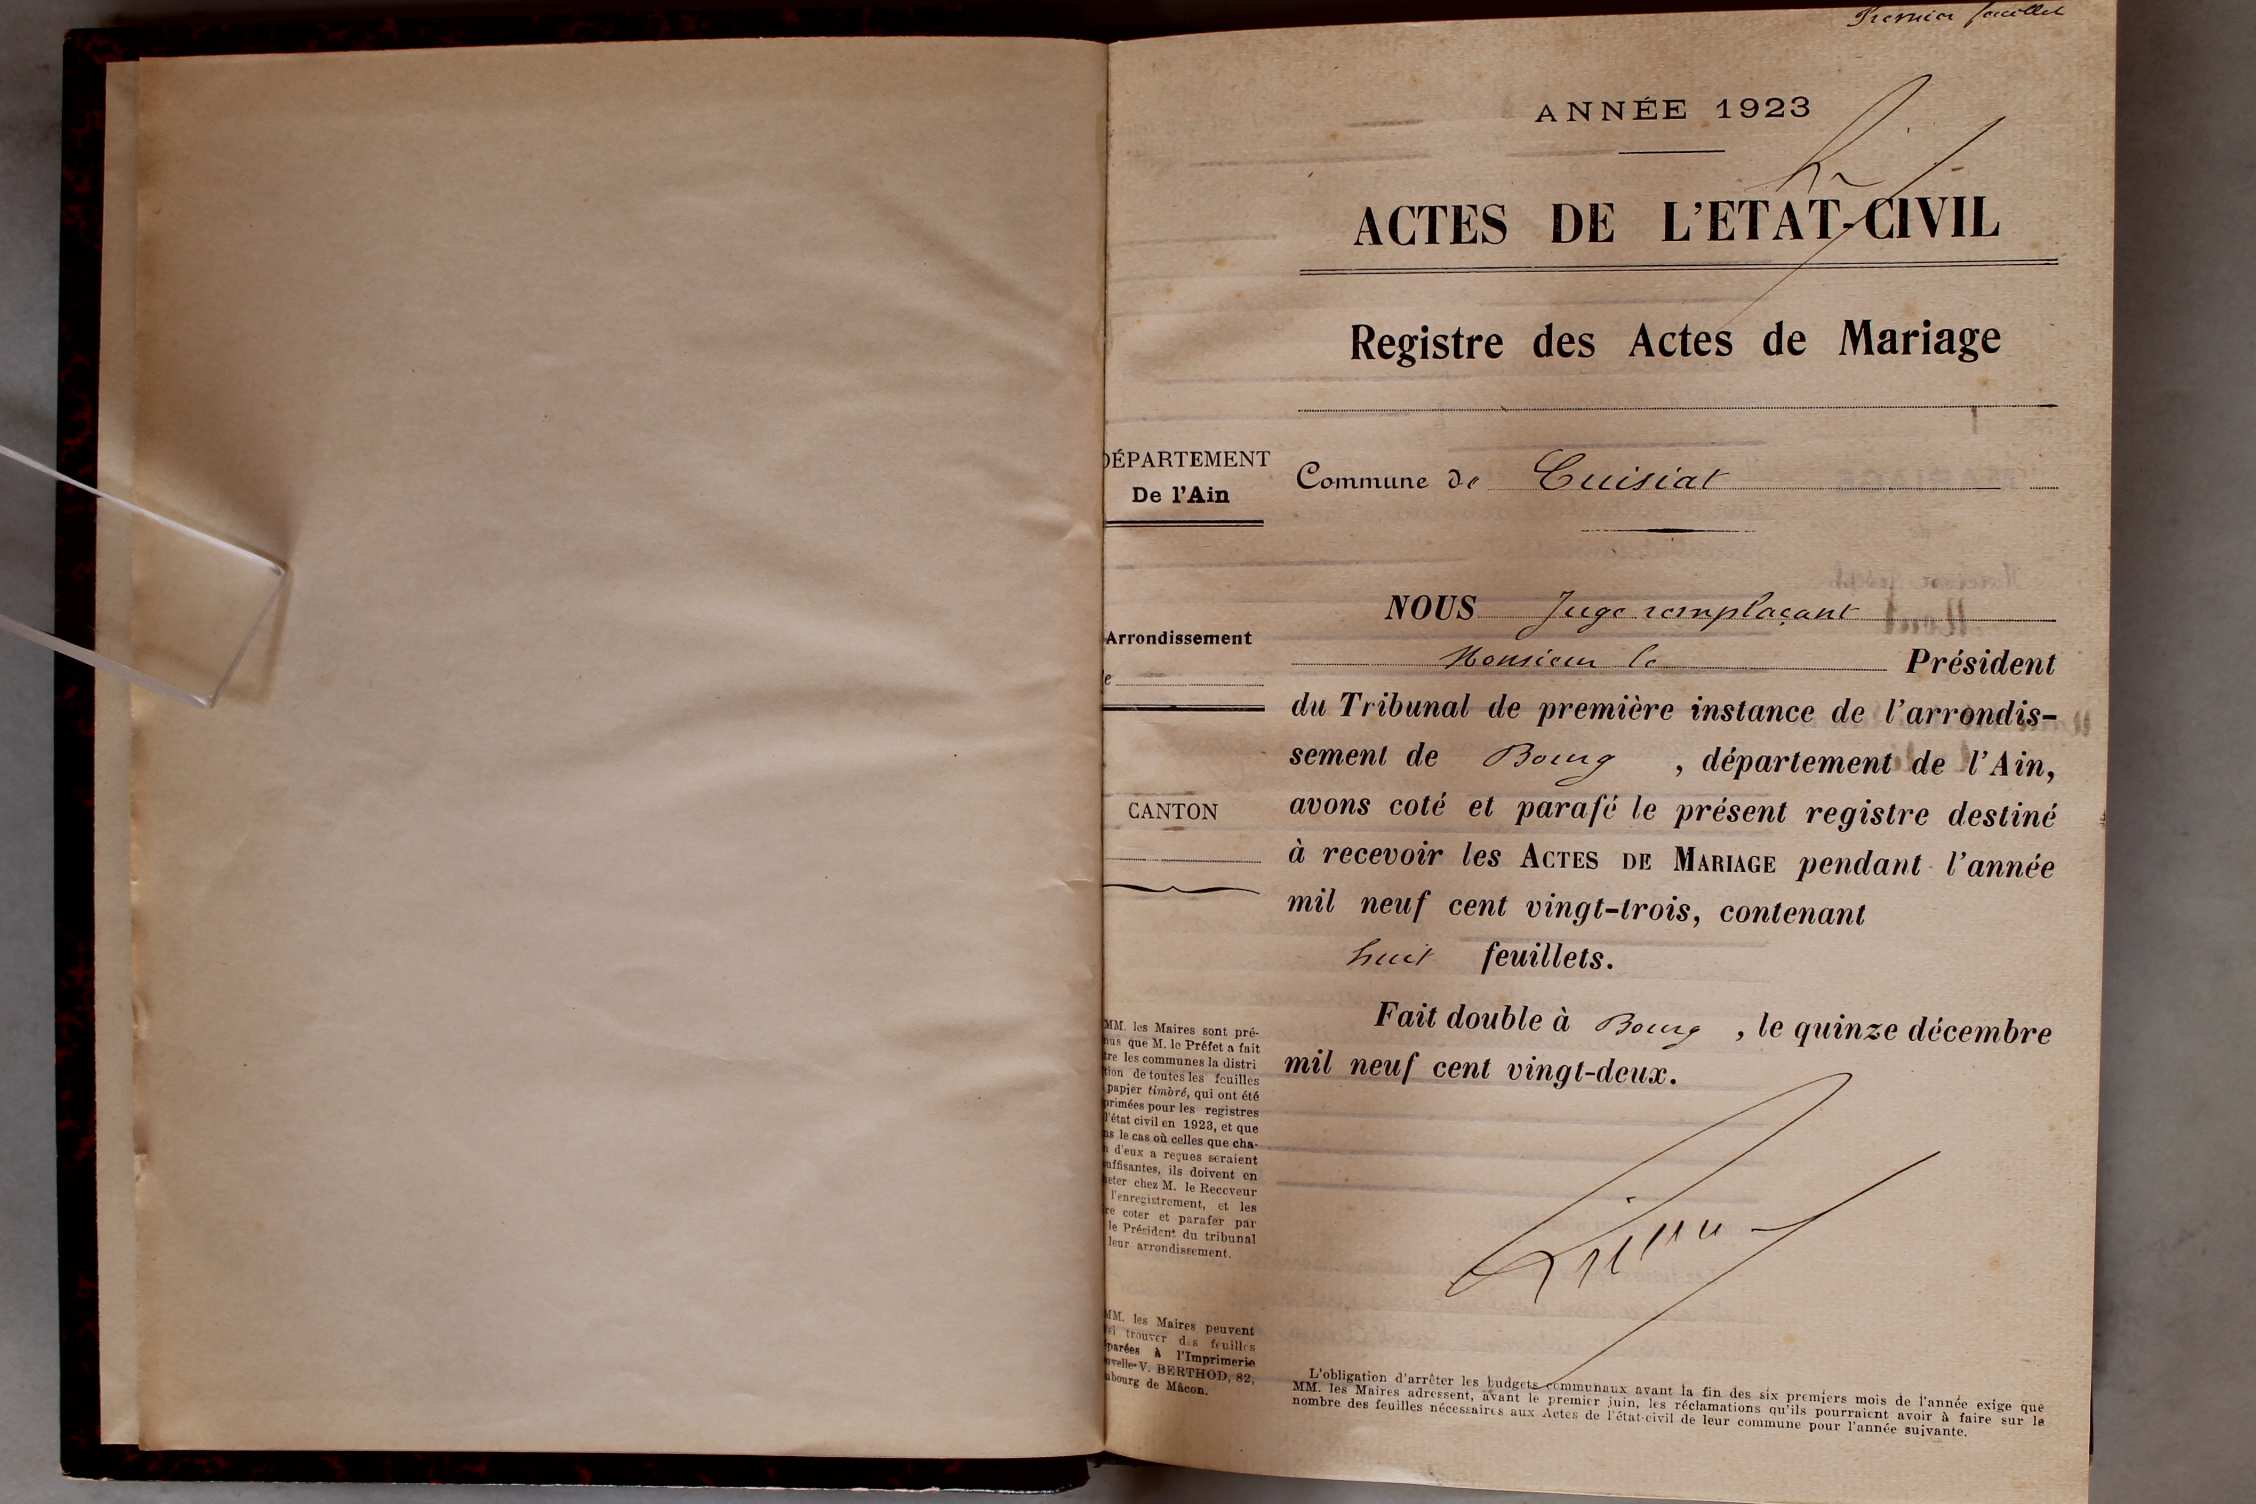 Premier feuillet
ANNÉE 1923
ACTES DE L'ETAT-CIVIL
Registre des Actes de Mariage
DÉPARTEMENT
De l'Ain
Commune de Cuisiat
Arrondissement
CANTON
NOUS Juge remplaçant
Monsieur le Président
du Tribunal de première instance de l'arrondis-
sement de Bourg, département de l'Ain,
avons coté et parafé le présent registre destiné
à recevoir les ACTES DE MARIAGE pendant l'année
mil neuf cent vingt-trois, contenant
huit feuillets.
Fait double à Bourg, le quinze décembre
mil neuf cent vingt-deux.
MM. les Maires sont pré-
nus que M. le Préfet a fait
tre les communes la distri
tion de toutes les feuilles
papier timbré, qui ont été
primées pour les registres
l'état civil en 1923, et que
ns le cas où celles que cha-
n d'eux a reçues seraient
uffisantes, ils doivent en
eter chez M. le Receveur
l'enregistrement, et les
re coter et parafer par
le Président du tribunal
leur arrondissement.
MM. les Maires peuvent
si trouver des feuilles
parées à l'Imprimerie
uvelle V. BERTHOD, 82,
ubourg de Mâcon.
L'obligation d'arrêter les budgets communaux avant la fin des six premiers mois de l'année exige que
MM. les Maires adressent, avant le premier juin, les réclamations qu'ils pourraient avoir à faire sur le
nombre des feuilles nécessaires aux Actes de l'état-civil de leur commune pour l'année suivante.